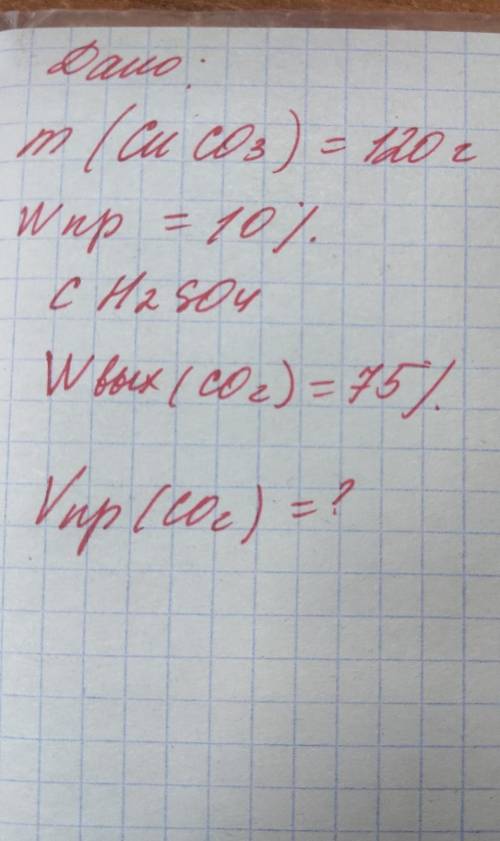 Дано:
m (CuCO3) = 120 г
Wпр = 10%.
с H2SO4
Wвых (CO2) = 75%.
Vпр (CO2) = ?